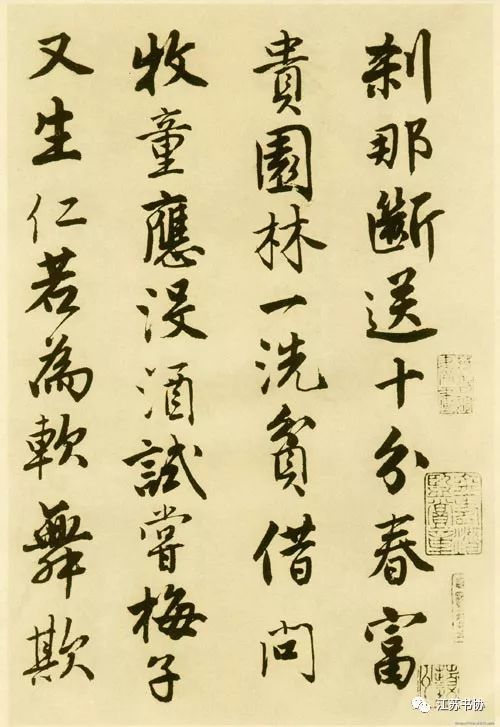 刹那斷送十分春富
貴園林一洗貧借問
牧童應沒酒試嘗梅子
又生仁若為軟舞欺
江苏书协